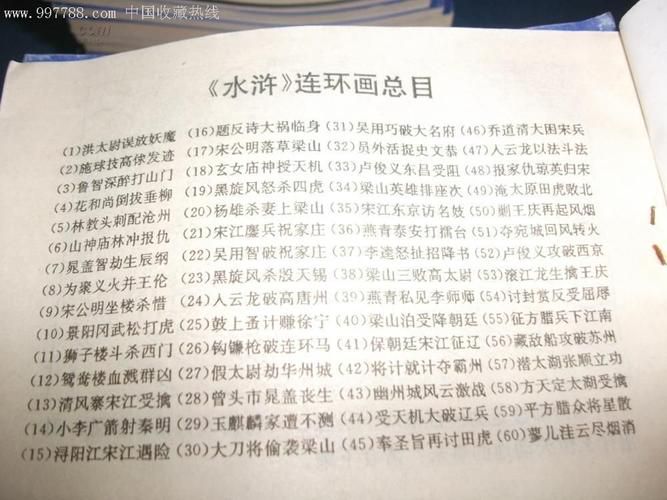 www.997788.com 中国收藏热线
《水浒》连环画总目
(1)洪太尉误放妖魔 (16)题反诗大祸临身 (31)吴用巧破大名府 (46)乔道清大困宋兵
(2)施球技高俅发迹 (17)宋公明落草梁山 (32)员外活捉史文恭 (47)入云龙以法斗法
(3)鲁智深醉打山门 (18)玄女庙神授天机 (33)卢俊义东昌受阻 (48)报家仇琼英归宋
(4)花和尚倒拔垂柳 (19)黑旋风怒杀四虎 (34)梁山英雄排座次 (49)淹太原田虎败北
(5)林教头刺配沧州 (20)杨雄杀妻上梁山 (35)宋江东京访名妓 (50)剿王庆再起风烟
(6)山神庙林冲报仇 (21)宋江鏖兵祝家庄 (36)燕青泰安打擂台 (51)夺宛城回风转火
(7)晁盖智劫生辰纲 (22)吴用智破祝家庄 (37)李逵怒扯招降书 (52)卢俊义攻破西京
(8)为聚义火并王伦 (23)黑旋风杀殷天锡 (38)梁山三败高太尉 (53)滚江龙生擒王庆
(9)宋公明坐楼杀惜 (24)入云龙破高唐州 (39)燕青私见李师师 (54)讨封赏反受屈辱
(10)景阳冈武松打虎 (25)鼓上蚤计赚徐宁 (40)梁山泊受降朝廷 (55)征方腊兵下江南
(11)狮子楼斗杀西门 (26)钩镰枪破连环马 (41)保朝廷宋江征辽 (56)藏敌船攻破苏州
(12)鸳鸯楼血溅群凶 (27)假太尉劫华州城 (42)将计就计夺霸州 (57)潜太湖张顺立功
(13)清风寨宋江受擒 (28)曾头市晁盖丧生 (43)幽州城风云激战 (58)方天定太湖受擒
(14)小李广箭射秦明 (29)玉麒麟家遭不测 (44)受天机大破辽兵 (59)平方腊众将星散
(15)浔阳江宋江遇险 (30)大刀将偷袭梁山 (45)奉圣旨再讨田虎 (60)蓼儿洼云尽烟消